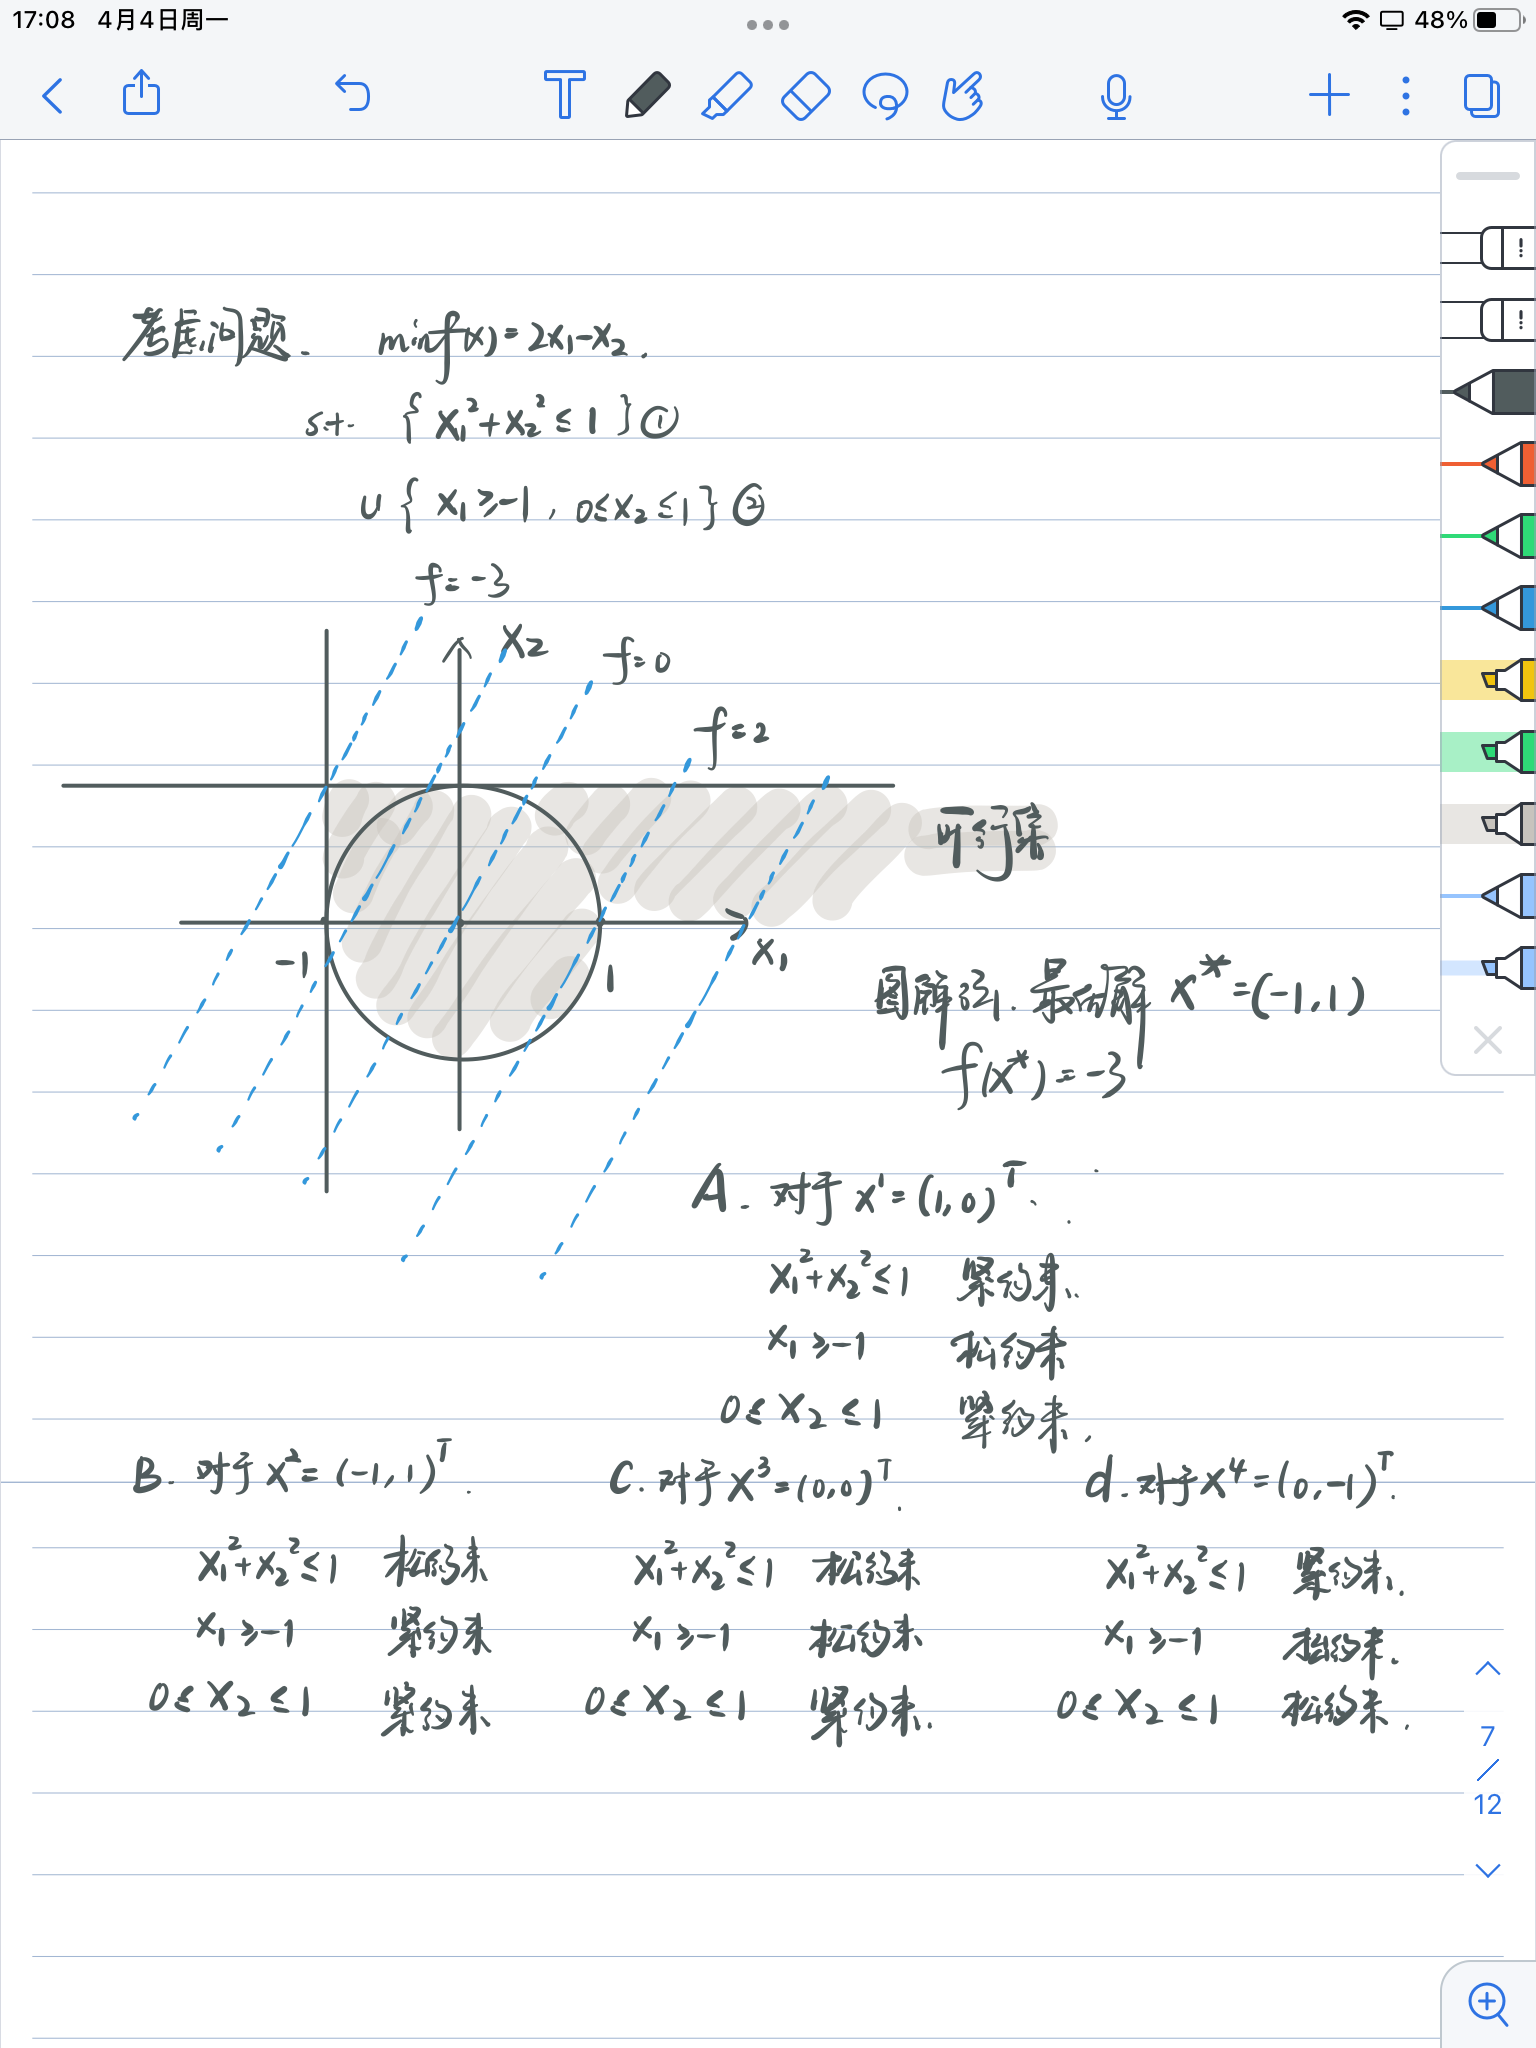 17:08 4月4日周一 48%
考虑问题. min f(x) = 2x₁-x₂.
s.t. { x₁²+x₂² ≤ 1 } ①
∪ { x₁ ≥ -1 , 0≤x₂ ≤1 } ②
f=-3
x₂
f=0
f=2
可行集
-1
1
x₁
图解法. 最优解 x*=(-1,1)
f(x*)=-3
A. 对于 x¹=(1,0)ᵀ.
x₁²+x₂² ≤ 1 紧约束.
x₁ ≥ -1 松约束
0 ≤ x₂ ≤ 1 紧约束.
B. 对于 x²= (-1,1)ᵀ.
x₁²+x₂² ≤ 1 松约束
x₁ ≥ -1 紧约束
0 ≤ x₂ ≤ 1 紧约束
C. 对于 x³=(0,0)ᵀ.
x₁²+x₂² ≤ 1 松约束
x₁ ≥ -1 松约束
0 ≤ x₂ ≤ 1 紧约束.
d. 对于 x⁴=(0,-1)ᵀ.
x₁²+x₂² ≤ 1 紧约束.
x₁ ≥ -1 松约束.
0 ≤ x₂ ≤ 1 松约束.
7
/
12